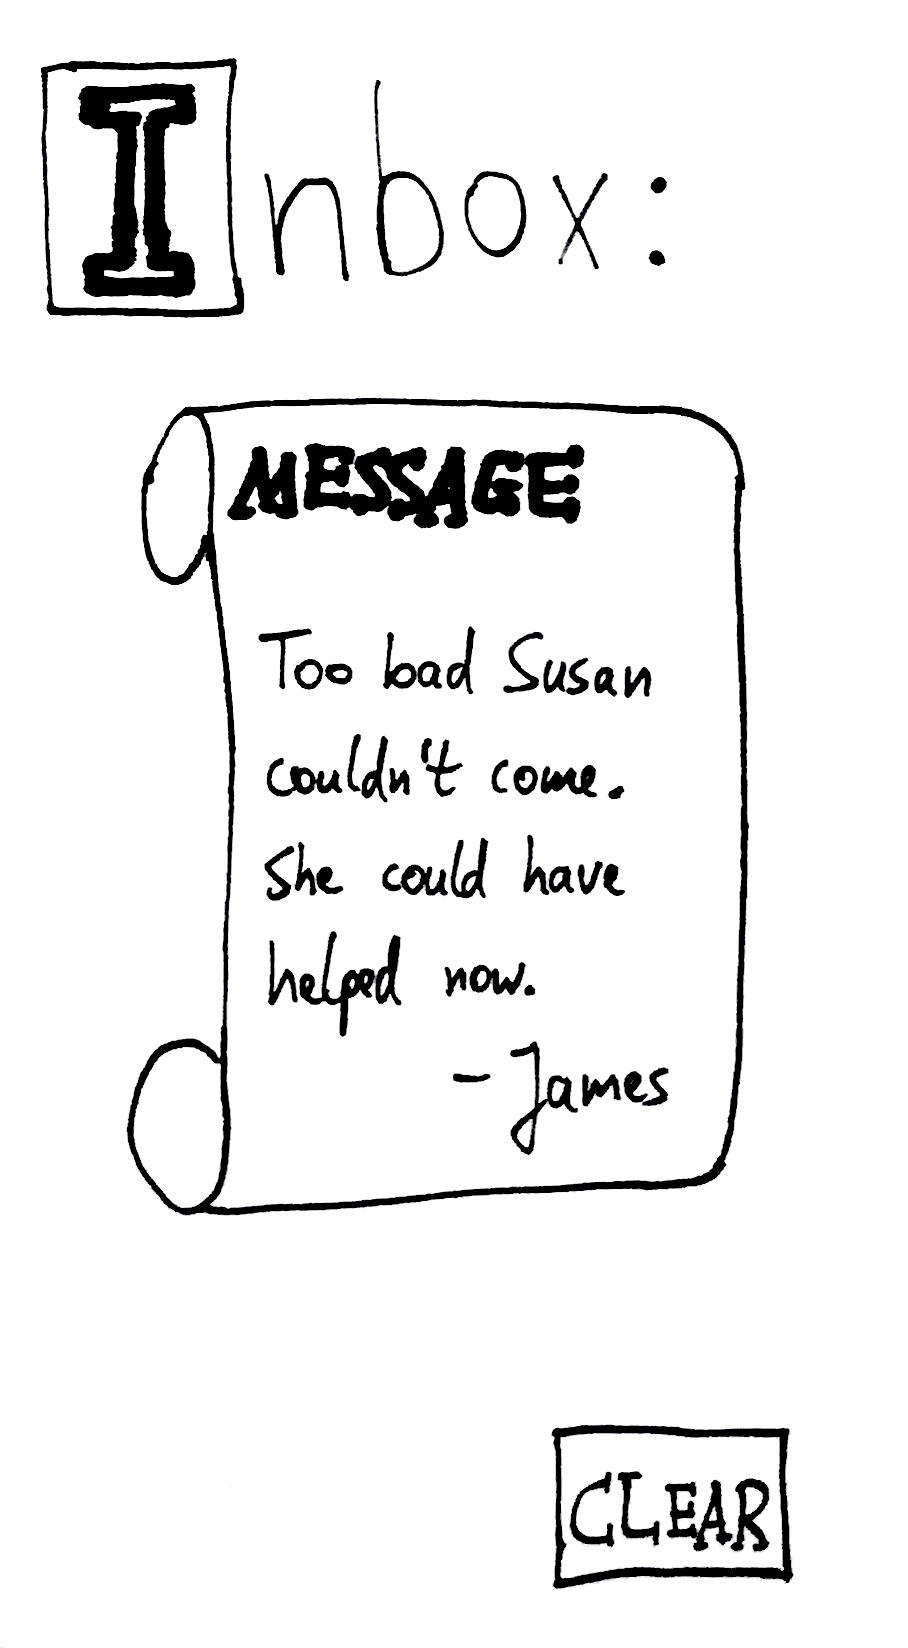 Inbox:
MESSAGE
Too bad Susan
couldn't come.
She could have
helped now.
- James
CLEAR